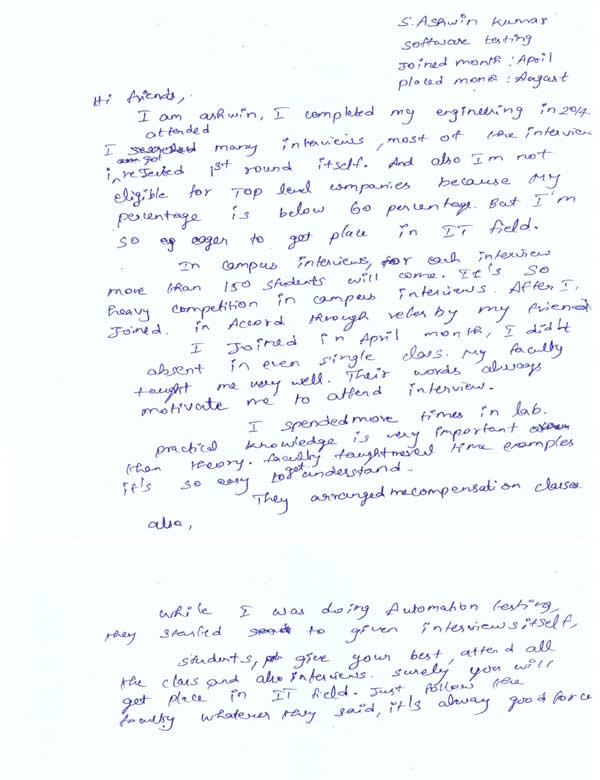 S. Ashwin Kumar
Software testing
Joined month : April
placed month : August
Hi friends,
I am ashwin, I completed my engineering in 2014.
attended
I many interviews, most of the interview
am got
in rejected 1st round itself. And also I'm not
eligible for Top level companies because My
percentage is below 60 percentage. But I'm
so eager to get place in IT field.
In campus interviews, for each interview
more than 150 students will come. It's so
heavy competition in campus interviews. After I,
Joined. in Accord through refer by my friend
I Joined in April month, I didn't
absent in even single class. My faculty
taught me very well. Their words always
motivate me to attend interview.
I spended more times in lab.
practical knowledge is very important
than theory. faculty taught time examples
get
it's so easy to understand.
They arranged me compensation classes
also,
while I was doing Automation testing,
they started to given interviews itself,
students, give your best, attend all
the class and also interviews. surely you will
get place in IT field. Just follow the
faculty whatever they said, it's alway good for